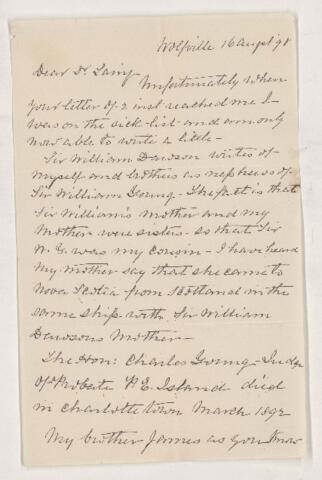 Wolfville 16 Augst 98
Dear Dr Laing.
Unfortunately when
your letter of 2 inst reached me I
was on the sick-list and am only
now able to write a little-
Sir William Dawson writes of
myself and brothers as nephews of
Sir William Young- The fact is that
Sir William's Mother and my
Mother were sisters- so that Sir
W. Y. was my cousin- I have heard
my mother say that she came to
Nova Scotia from Scotland in the
same ship with Sir William
Dawsons Mother-
The Hon: Charles Young- Judge
of Probate P. E. Island died
in Charlottetown March 1892
My brother James as you know